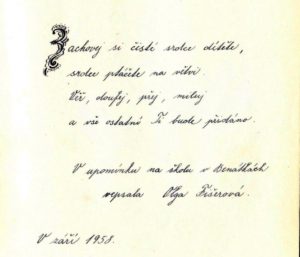 Zachovej si čisté srdce dítěte,
srdce ptáčete na větvi.
Věř, doufej, přej, miluj
a vše ostatní Ti bude přidáno.
V upomínku na školu v Benátkách
vepsala Olga Fišerová.
V září 1958.